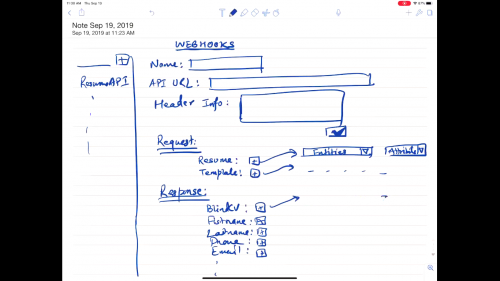 11:39 AM Thu Sep 19
Note Sep 19, 2019
Sep 19, 2019 at 11:23 AM
WEBHOOKS
Name:
ResumeAPI
API URL:
Header Info:
Request:
Resume:
Entities
Attribute
Template:
Response:
Firstname
Lastname
Phone
Email